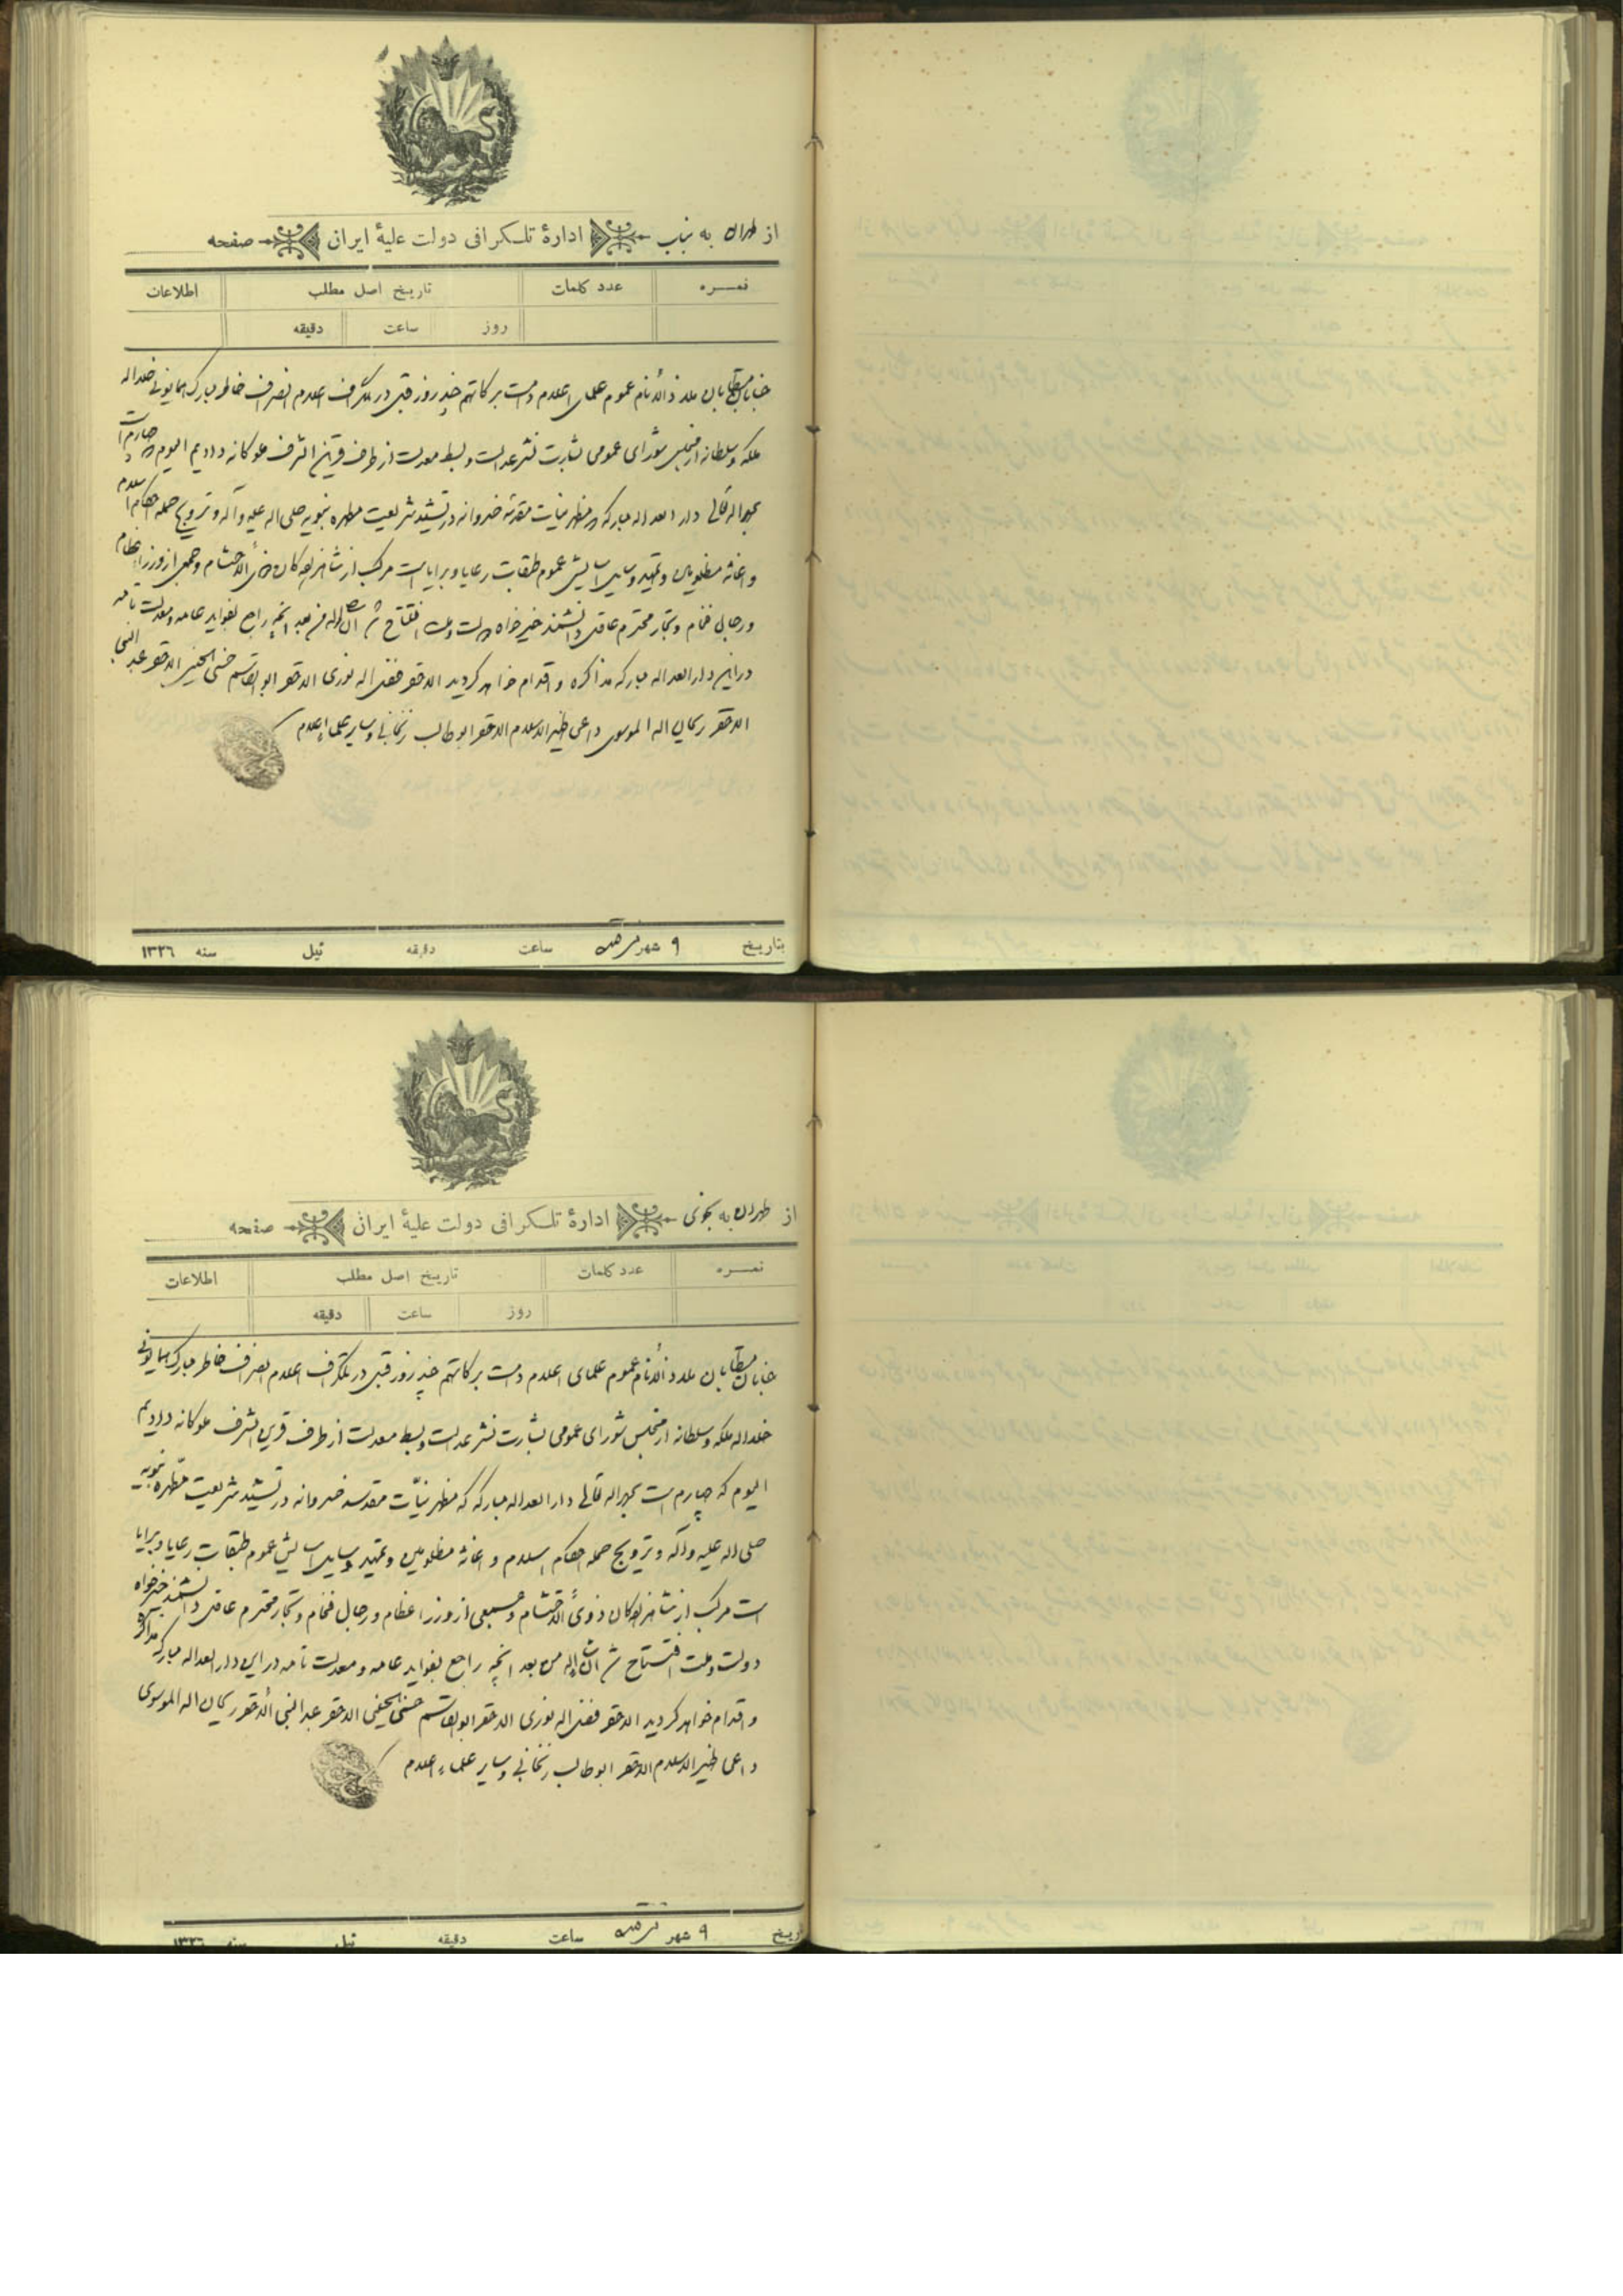 از طهران به بناب ادارهٔ تلگرافی دولت علیهٔ ایران صفحه
نمره عدد کلمات تاریخ اصل مطلب اطلاعات
روز ساعت دقیقه
جنابان مستطابان ملاذ الأنام عموم علمای اعلام دامت برکاتهم چند روز قبل در تلگراف اعلام انصراف خاطر مبارک همایونی خلد اله
ملکه و سلطانه از مجلس شورای عمومی بشارت نشر عدالت و بسط معدلت از طرف قرین الشرف ملوکانه دادیم الیوم که چهارم است
بحمد اله تعالی دار العداله مبارکه که مظهر نیات مقدسه خسروانه در تشیید شریعت مطهره نبویه صلی اله علیه و آله و ترویج جمله احکام اسلام
و اغاثه مظلومین و تمهید وسایل اسایش عموم طبقات رعایا و برایا است مرکب از شاهزادکان ذوی الاحتشام و جمعی از وزراء عظام
و رجال فخام و تجار محترم عاقل دانشمند خیرخواه دولت و ملت افتتاح شد انشاء اله من بعد انچه راجع بفواید عامه و معدلت تامه
در این دار العداله مبارکه مذاکره و اقدام خواهد کردید الاحقر فضل اله نوری الاحقر ابو القاسم حسنی الحسینی الاحقر عبد النبی
الاحقر ریحان اله الموسوی داعی ظهیر الاسلام الاحقر ابوطالب زنجانی و سایر علماء اعلام
بتاریخ ۹ شهر ساعت دقیقه ئیل سنه ۱۳۲٦
از طهران به ادارهٔ تلگرافی دولت علیهٔ ایران صفحه
نمره عدد کلمات تاریخ اصل مطلب اطلاعات
روز ساعت دقیقه
جنابان مستطابان ملاذ الأنام عموم علمای اعلام دامت برکاتهم چند روز قبل در تلگراف اعلام انصراف خاطر مبارک همایونی
خلد اله ملکه و سلطانه از مجلس شورای عمومی بشارت نشر عدالت و بسط معدلت از طرف قرین الشرف ملوکانه دادیم
الیوم که چهارم است بحمد اله تعالی دار العداله مبارکه که مظهر نیّات مقدسه خسروانه در تشیید شریعت مطهره نبویه
صلی اله علیه و آله و ترویج جمله احکام اسلام و اغاثه مظلومین و تمهید وسایل اسایش عموم طبقات رعایا و برایا
است مرکب از شاهزادکان ذوی الاحتشام و جمعی از وزراء عظام و رجال فخام و تجار محترم عاقل دانشمند خیرخواه
دولت و ملت افتتاح شد انشاء اله من بعد انچه راجع بفواید عامه و معدلت تامه در این دار العداله مبارکه مذاکره
و اقدام خواهد کردید الاحقر فضل اله نوری الاحقر ابو القاسم حسنی الحسینی الاحقر عبد النبی الاحقر ریحان اله الموسوی
داعی ظهیر الاسلام الاحقر ابوطالب زنجانی و سایر علماء اعلام
بتاریخ ۹ شهر ساعت دقیقه ئیل سنه ۱۳۲٦